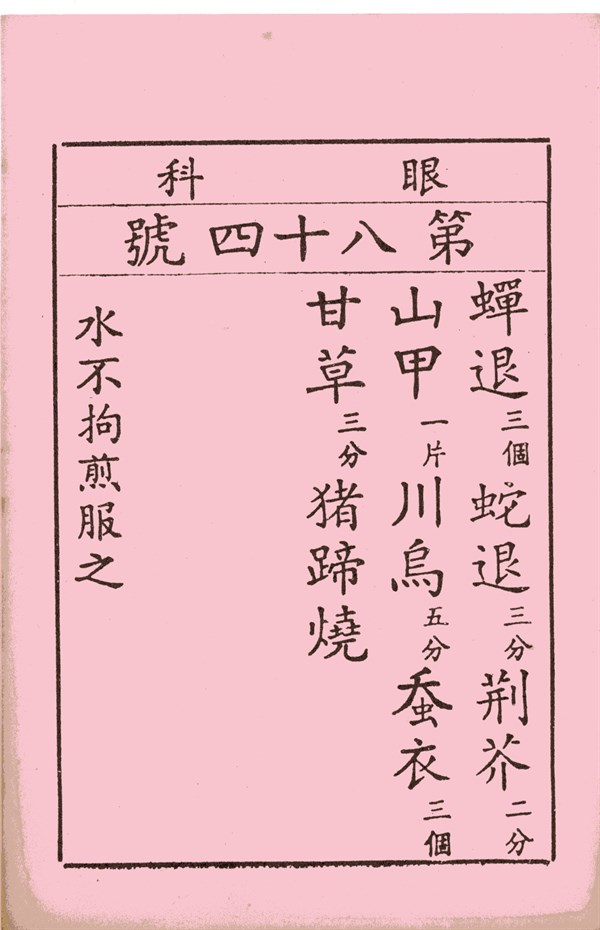 眼科
第八十四號
蟬退三個蛇退三分荆芥二分
山甲一片川烏五分蚕衣三個
甘草三分猪蹄燒
水不拘煎服之